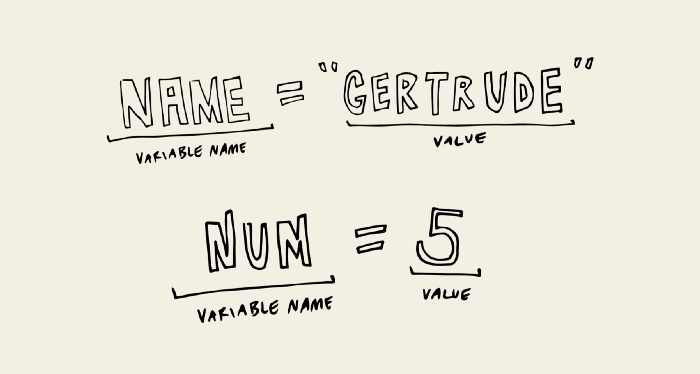 NAME = "GERTRUDE"
VARIABLE NAME VALUE
NUM = 5
VARIABLE NAME VALUE